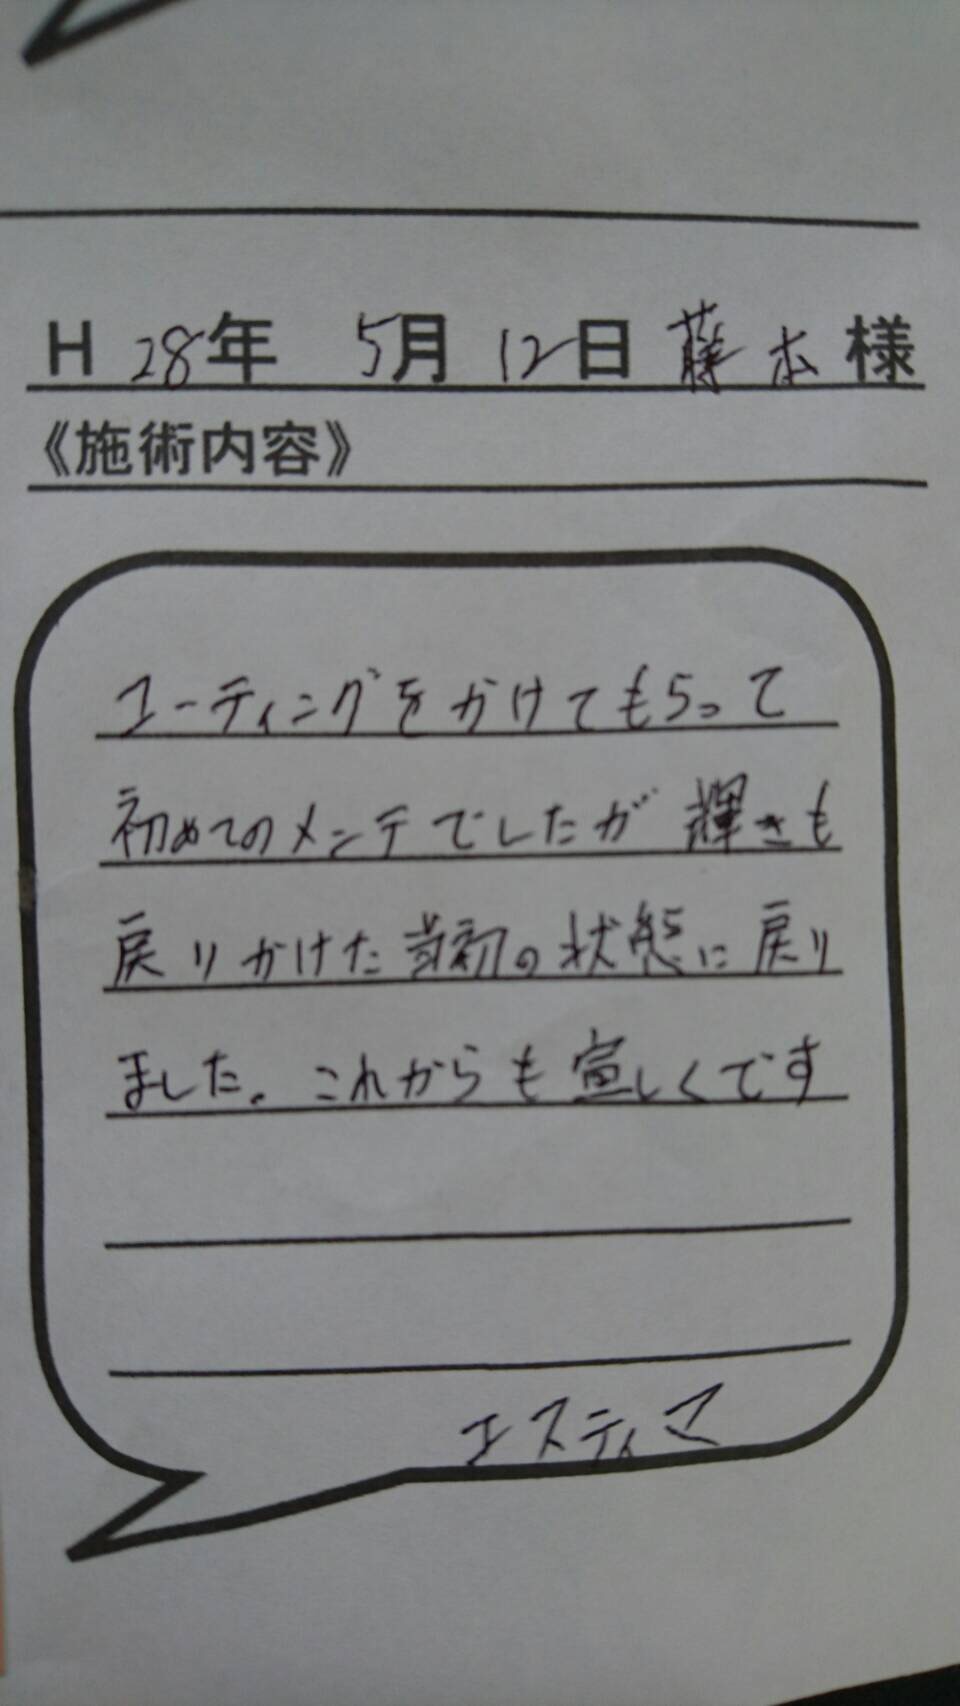 H 28年 5月 12日 藤本 様
《施術内容》
コーティングをかけてもらって
初めてのメンテでしたが 輝きも
戻りかけた当初の状態に戻り
ました。これからも宜しくです
エスティマ